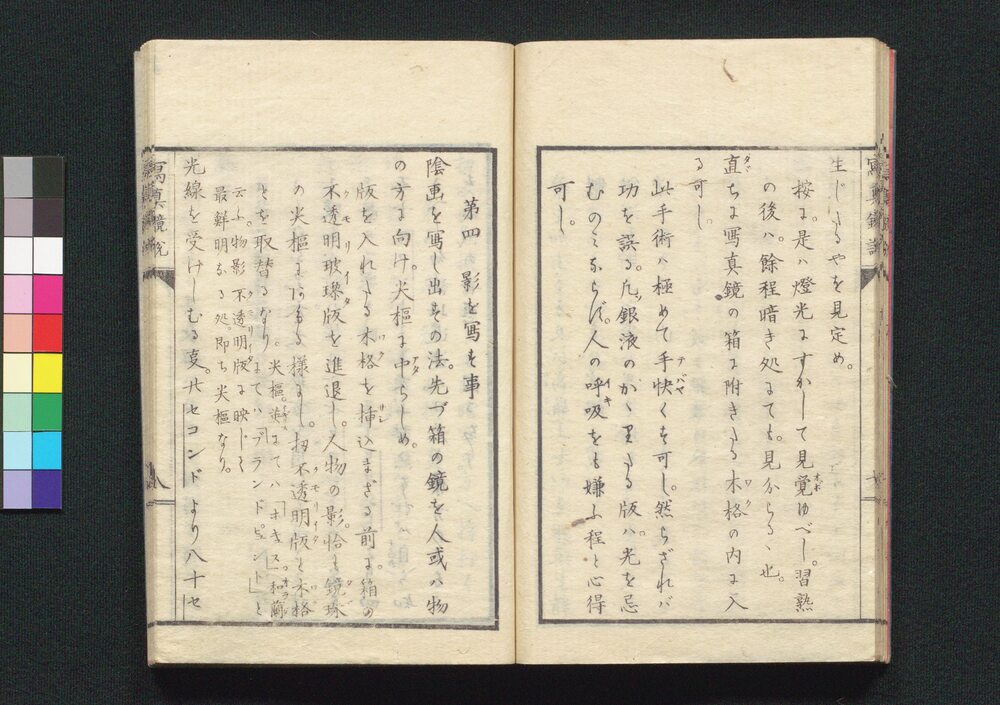 生じたるやを見定め。
按に。是ハ燈光にすかして見覚ゆべし。習熟
の後ハ。餘程暗き処にても。見分らるゝ也。
直ちに写真鏡の箱に附きたる木格の内に入
る可し。
此手術ハ極めて手快くす可し。然らざれバ
功を誤る。凡銀液のかゝりたる版ハ。光を忌
むのミならず。人の呼吸をも嫌ふ程と心得
可し。
第四 影を写す事
陰画を写し出すの法。先づ箱の鏡を人或ハ物
の方に向け。火樞に中らしめ。
版を入れたる木格を挿込まざる前に。箱の
不透明玻瓈版を進退し。人物の影。恰も鏡球
の火樞にあたる様にし。扨不透明版と木格
とを取替るなり。火樞。英にてハ「ホキス」和蘭
にてハ「ブランドピュント」と
云ふ。物影不透明版に映じて
最鮮明なる処。即ち火樞なり。
光線を受けしむる支。廿セコンドより八十セ